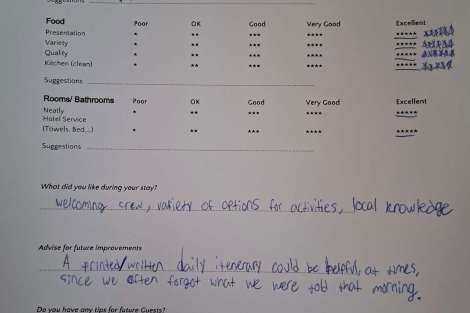 Suggestions
Food Poor OK Good Very Good Excellent
Presentation * ** *** **** *****
Variety * ** *** **** *****
Quality * ** *** **** *****
Kitchen (clean) * ** *** **** *****
Suggestions
Rooms/ Bathrooms Poor OK Good Very Good Excellent
Neatly * ** *** **** *****
Hotel Service
(Towels, Bed...) * ** *** **** *****
Suggestions
What did you like during your stay?
welcoming crew, variety of options for activities, local knowledge
Advise for future improvements
A printed/written daily itenerary could be helpful at times,
since we often forgot what we were told that morning.
Do you have any tips for future Guests?